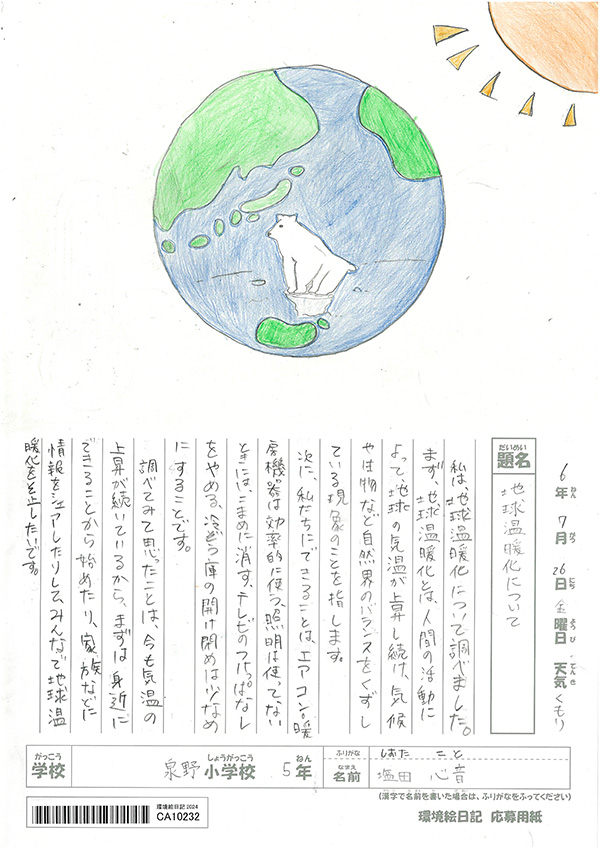 6年 7月 26日 金曜日 天気 くもり
ねん がつ にち ようび てんき
だいめい
題名 地球温暖化について
私は、地球温暖化について調べました。
まず、地球温暖化とは、人間の活動に
よって、地球の気温が上昇し続け、気候
や生物など自然界のバランスをくずし
ている現象のことを指します。
次に、私たちにできることは、エアコン。暖
房機器は効率的に使う、照明は使ってない
ときにはこまめに消す、テレビのつけっぱなし
をやめる、冷ぞう庫の開け閉めは少なめ
にすることです。
調べてみて思ったことは、今も気温の
上昇が続いているから、まずは身近に
できることから始めたり、家族などに
情報をシェアしたりして、みんなで地球温
暖化を止したいです。
がっこう しょうがっこう ねん
学校 泉野 小学校 5年
ふりがな しおた こと
なまえ
名前 塩田 心音
(漢字で名前を書いた場合は、ふりがなをふってください)
環境絵日記 応募用紙
環境絵日記 2024
CA10232